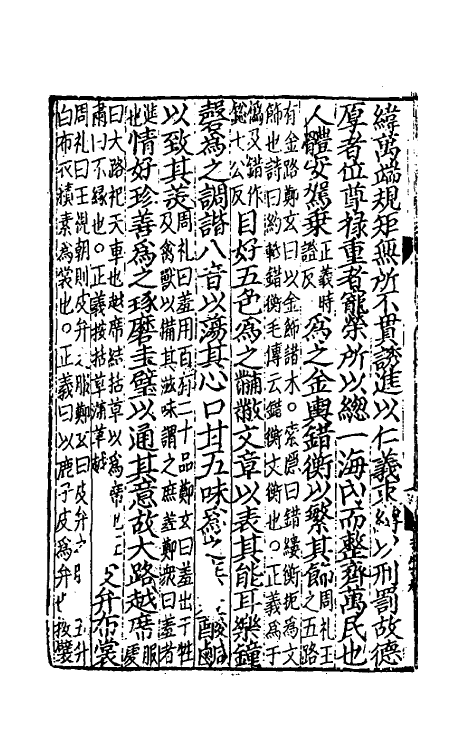 緯萬端規矩無所不貫誘進以仁義束縛以刑罰故德
厚者位尊祿重者寵榮所以總一海內而整齊萬民也
人體安駕乘正義時證反爲之金輿錯衡以繁其飾周礼王之五路
有金路鄭玄曰以金飾諸末。索隱曰錯鏤衡扼為文
飾也詩曰約軧錯衡毛傳云錯衡文衡也。正義為于
僞反錯作
䚡七公反目好五色爲之黼黻文章以表其能耳樂鐘
磬爲之調諧八音以蕩其心口甘五味爲之 酸鹹
以致其美周礼曰羞用百有二十品鄭玄曰羞出于牲
及禽獸以備其滋味謂之庶羞鄭衆曰羞者
進也情好珍善爲之琢磨圭璧以通其意故大路越席服虔
曰大路祀天車也越席結括草以為席也
肅曰不緣也。正義按括草蒲草越 皮弁布裳
周礼曰王視朝則皮弁之服鄭玄曰皮弁之服 玉升
白布衣積素為裳也。正義曰以鹿子皮為弁也按襞